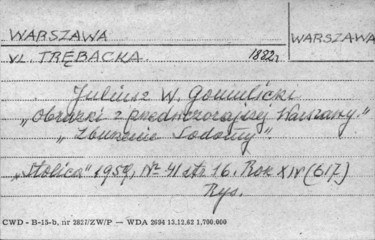 WARSZAWA
WARSZAWA
Ul. TRĘBACKA. 1882r.
Juliusz W. Gomulicki
„Obrazki z przedwczorajszej Warszawy."
„Zburzenie Sodomy".
„Stolica" 1959, Nr 41 str. 16. Rok XIV (617)
Rys.
CWD - B-15-b, nr 2827/ZW/P — WDA 2694 13.12.62 1,700.000